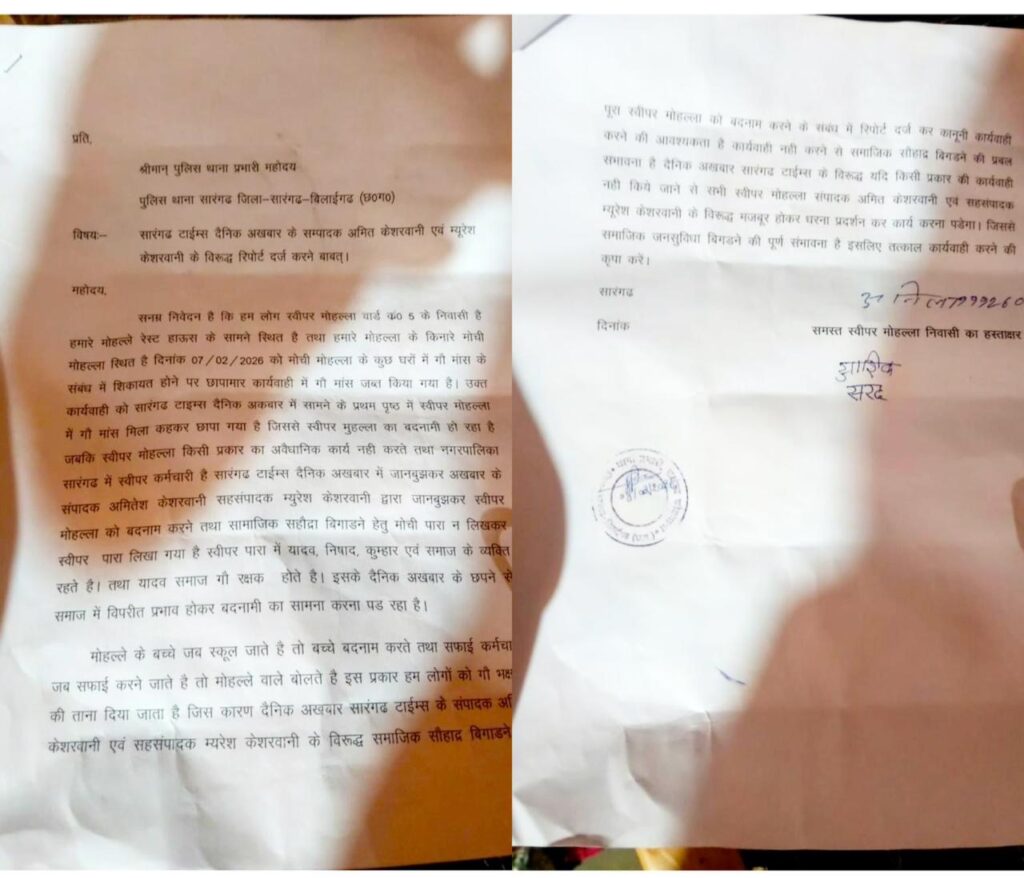 प्रति,
श्रीमान् पुलिस थाना प्रभारी महोदय
पुलिस थाना सारंगढ जिला–सारंगढ–बिलाईगढ (छ०ग०)
विषय:– सारंगढ टाईम्स दैनिक अखबार के सम्पादक अमित केशरवानी एवं म्यूरेश
केशरवानी के विरूद्ध रिपोर्ट दर्ज करने बाबत्।
महोदय,
सनम्र निवेदन है कि हम लोग स्वीपर मोहल्ला वार्ड क० 5 के निवासी है
हमारे मोहल्ले रेस्ट हाऊस के सामने स्थित है तथा हमारे मोहल्ले के किनारे मोची
मोहल्ला स्थित है दिनांक 07/02/2026 को मोची मोहल्ला के कुछ घरों में गौ मांस के
संबंध में शिकायत होने पर छापामार कार्यवाही में गौ मांस जब्त किया गया है। उक्त
कार्यवाही को सारंगढ टाइम्स दैनिक अकबार में सामने के प्रथम पृष्ठ में स्वीपर मोहल्ला
में गौ मांस मिला कहकर छापा गया है जिससे स्वीपर मुहल्ला का बदनामी हो रहा है
जबकि स्वीपर मोहल्ला किसी प्रकार का अवैधानिक कार्य नही करते तथा नगरपालिका
सारंगढ में स्वीपर कर्मचारी है सारंगढ टाईम्स दैनिक अखबार में जानबुझकर अखबार के
संपादक अमितेश केशरवानी सहसंपादक म्युरेश केशरवानी द्वारा जानबुझकर स्वीपर
मोहल्ला को बदनाम करने तथा सामाजिक सहौद्रा बिगाडने हेतु मोची पारा न लिखकर
स्वीपर पारा लिखा गया है स्वीपर पारा में यादव, निषाद, कुम्हार एवं समाज के व्यक्ति
रहते है। तथा यादव समाज गौ रक्षक होते है। इसके दैनिक अखबार के छपने से
समाज में विपरीत प्रभाव होकर बदनामी का सामना करना पड रहा है।
मोहल्ले के बच्चे जब स्कूल जाते है तो बच्चे बदनाम करते तथा सफाई कर्मचा
जब सफाई करने जाते है तो मोहल्ले वाले बोलते है इस प्रकार हम लोगों को गौ भक्ष
की ताना दिया जाता है जिस कारण दैनिक अखबार सारंगढ टाईम्स के संपादक अ
केशरवानी एवं सहसंपादक म्यरेश केशरवानी के विरूद्ध समाजिक सौहाद्र बिगाडने
पूरा स्वीपर मोहल्ला को बदनाम करने के संबंध में रिपोर्ट दर्ज कर कानूनी कार्यवाही
करने की आवश्यकता है कार्यवाही नही करने से समाजिक सौहाद्र बिगडने की प्रबल
समभावना है दैनिक अखबार सारंगढ टाईम्स के विरूद्ध यदि किसी प्रकार की कार्यवाही
नही किये जाने से सभी स्वीपर मोहल्ला संपादक अमित केशरवानी एवं सहसंपादक
म्यूरेश केशरवानी के विरूद्ध मजबूर होकर धरना प्रदर्शन कर कार्य करना पडेगा। जिससे
समाजिक जनसुविधा बिगडने की पूर्ण संभावना है इसलिए तत्काल कार्यवाही करने की
कृपा करें।
सारंगढ
दिनांक
समस्त स्वीपर मोहल्ला निवासी का हस्ताक्षर
सरद